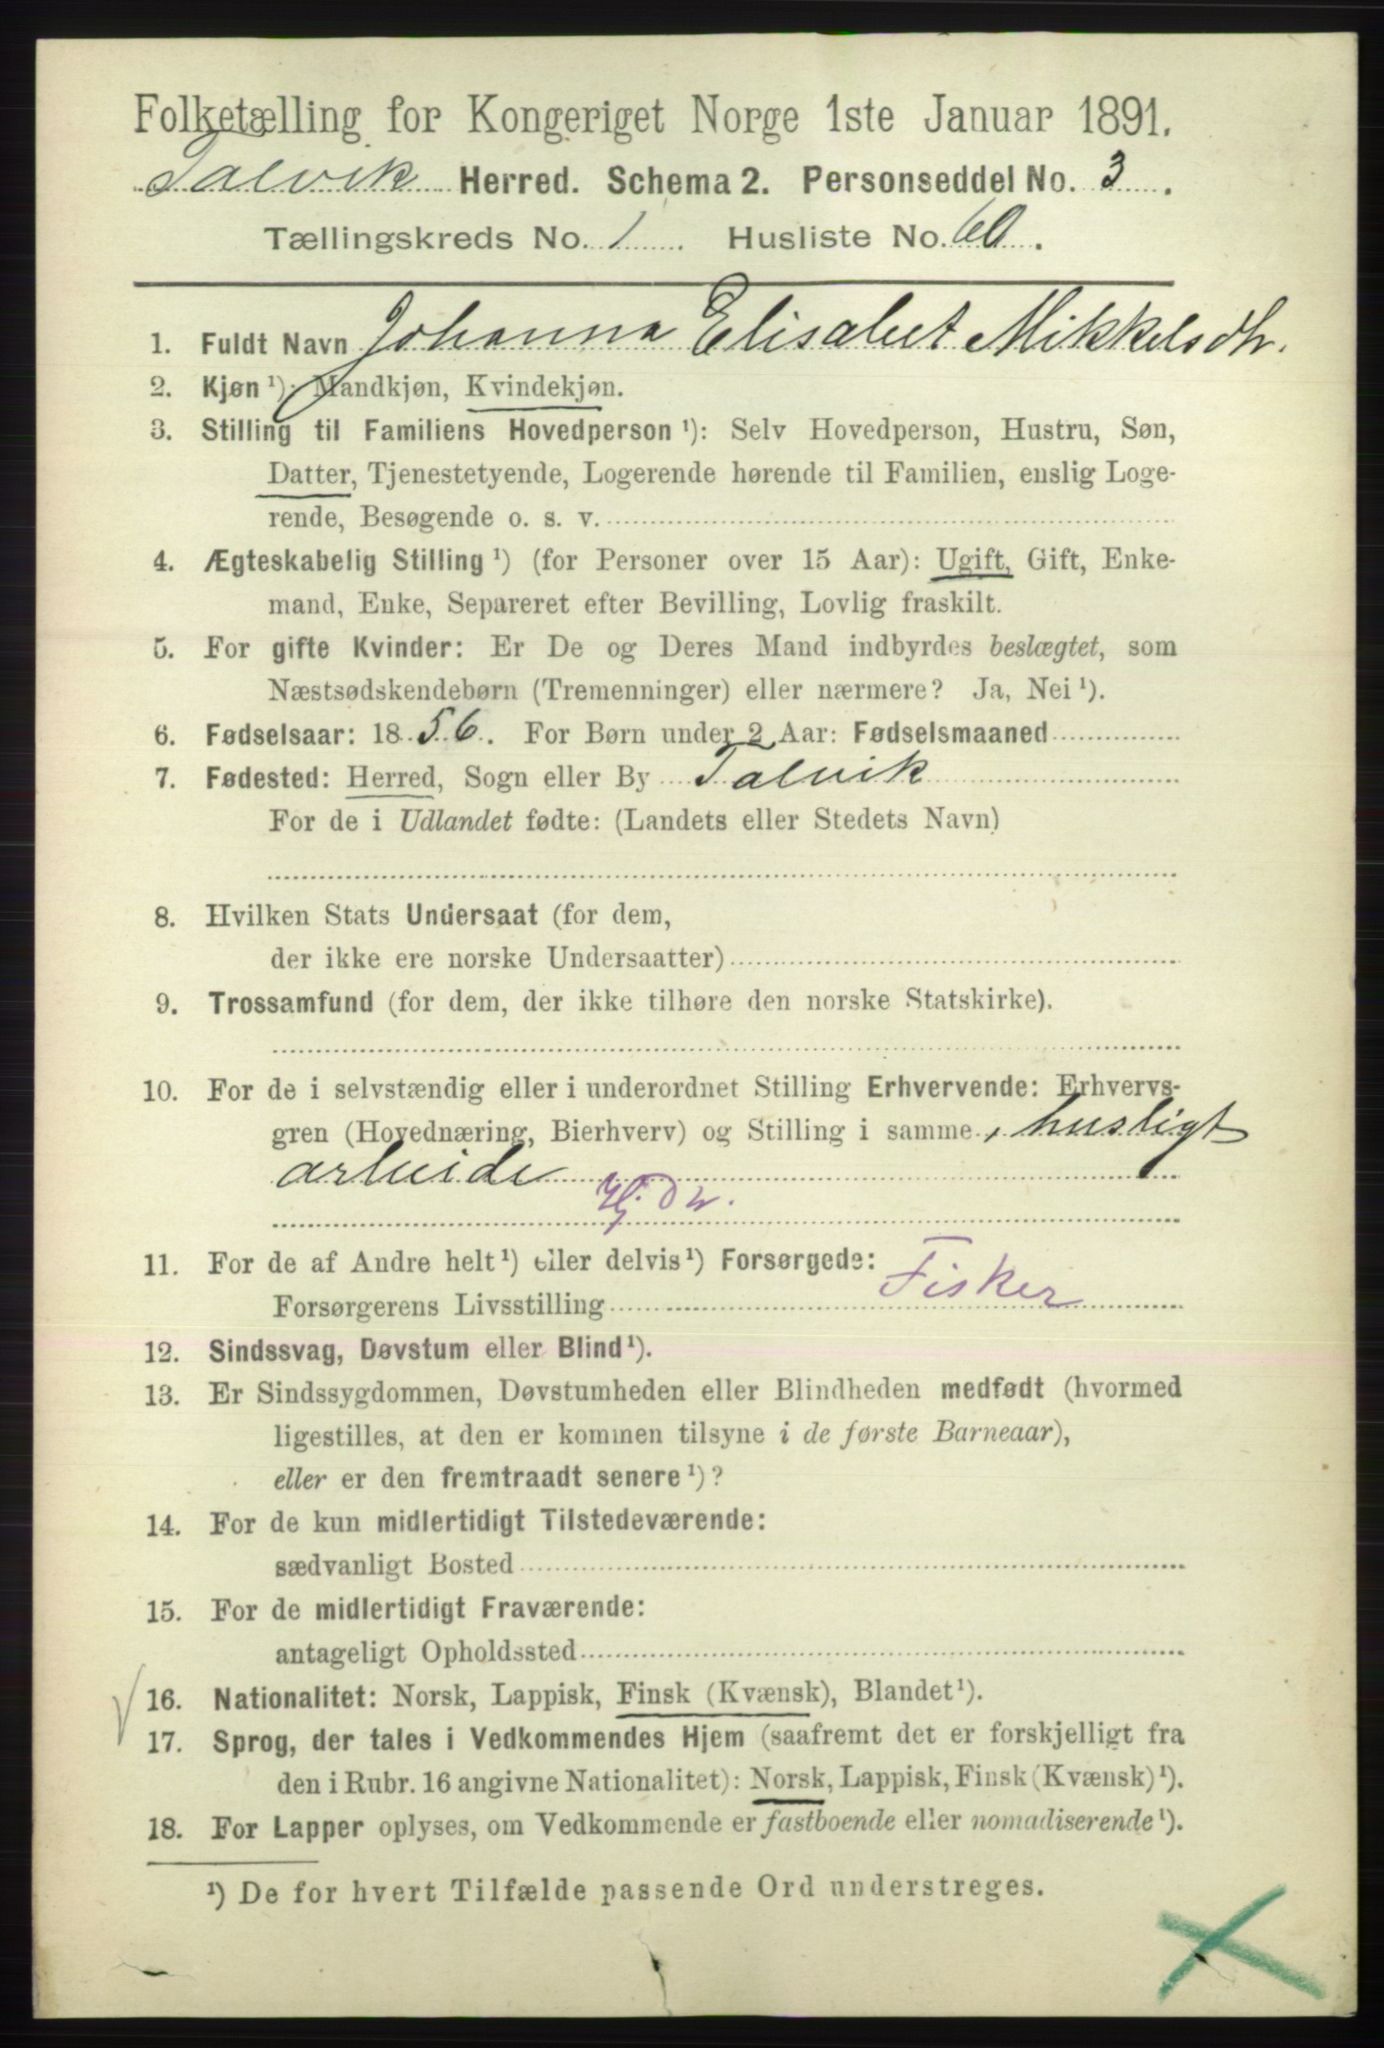 Folketælling for Kongeriget Norge 1ste Januar 1891.
Talvik Herred. Schema 2. Personseddel No. 3.
Tællingskreds No. 1 Husliste No. 60.
1. Fuldt Navn Johanna Elisabet Mikkelsdtr.
2. Kjøn ¹): Mandkjøn, Kvindekjøn.
3. Stilling til Familiens Hovedperson ¹): Selv Hovedperson, Hustru, Søn,
Datter, Tjenestetyende, Logerende hørende til Familien, enslig Loge-
rende, Besøgende o. s. v.
4. Ægteskabelig Stilling ¹) (for Personer over 15 Aar): Ugift, Gift, Enke-
mand, Enke, Separeret efter Bevilling, Lovlig fraskilt.
5. For gifte Kvinder: Er De og Deres Mand indbyrdes beslægtet, som
Næstsødskendebørn (Tremenninger) eller nærmere? Ja, Nei ¹).
6. Fødselsaar: 1856. For Børn under 2 Aar: Fødselsmaaned
7. Fødested: Herred, Sogn eller By Talvik
For de i Udlandet fødte: (Landets eller Stedets Navn)
8. Hvilken Stats Undersaat (for dem,
der ikke ere norske Undersaatter)
9. Trossamfund (for dem, der ikke tilhøre den norske Statskirke).
10. For de i selvstændig eller i underordnet Stilling Erhvervende: Erhvervs-
gren (Hovednæring, Bierhverv) og Stilling i samme, husligt
arbeide
Hj. Dr.
11. For de af Andre helt ¹) eller delvis ¹) Forsørgede:
Forsørgerens Livsstilling Fisker
12. Sindssvag, Døvstum eller Blind ¹).
13. Er Sindssygdommen, Døvstumheden eller Blindheden medfødt (hvormed
ligestilles, at den er kommen tilsyne i de første Barneaar),
eller er den fremtraadt senere ¹)?
14. For de kun midlertidigt Tilstedeværende:
sædvanligt Bosted
15. For de midlertidigt Fraværende:
antageligt Opholdssted
16. Nationalitet: Norsk, Lappisk, Finsk (Kvænsk), Blandet ¹).
17. Sprog, der tales i Vedkommendes Hjem (saafremt det er forskjelligt fra
den i Rubr. 16 angivne Nationalitet): Norsk, Lappisk, Finsk (Kvænsk) ¹).
18. For Lapper oplyses, om Vedkommende er fastboende eller nomadiserende ¹).
¹) De for hvert Tilfælde passende Ord understreges.